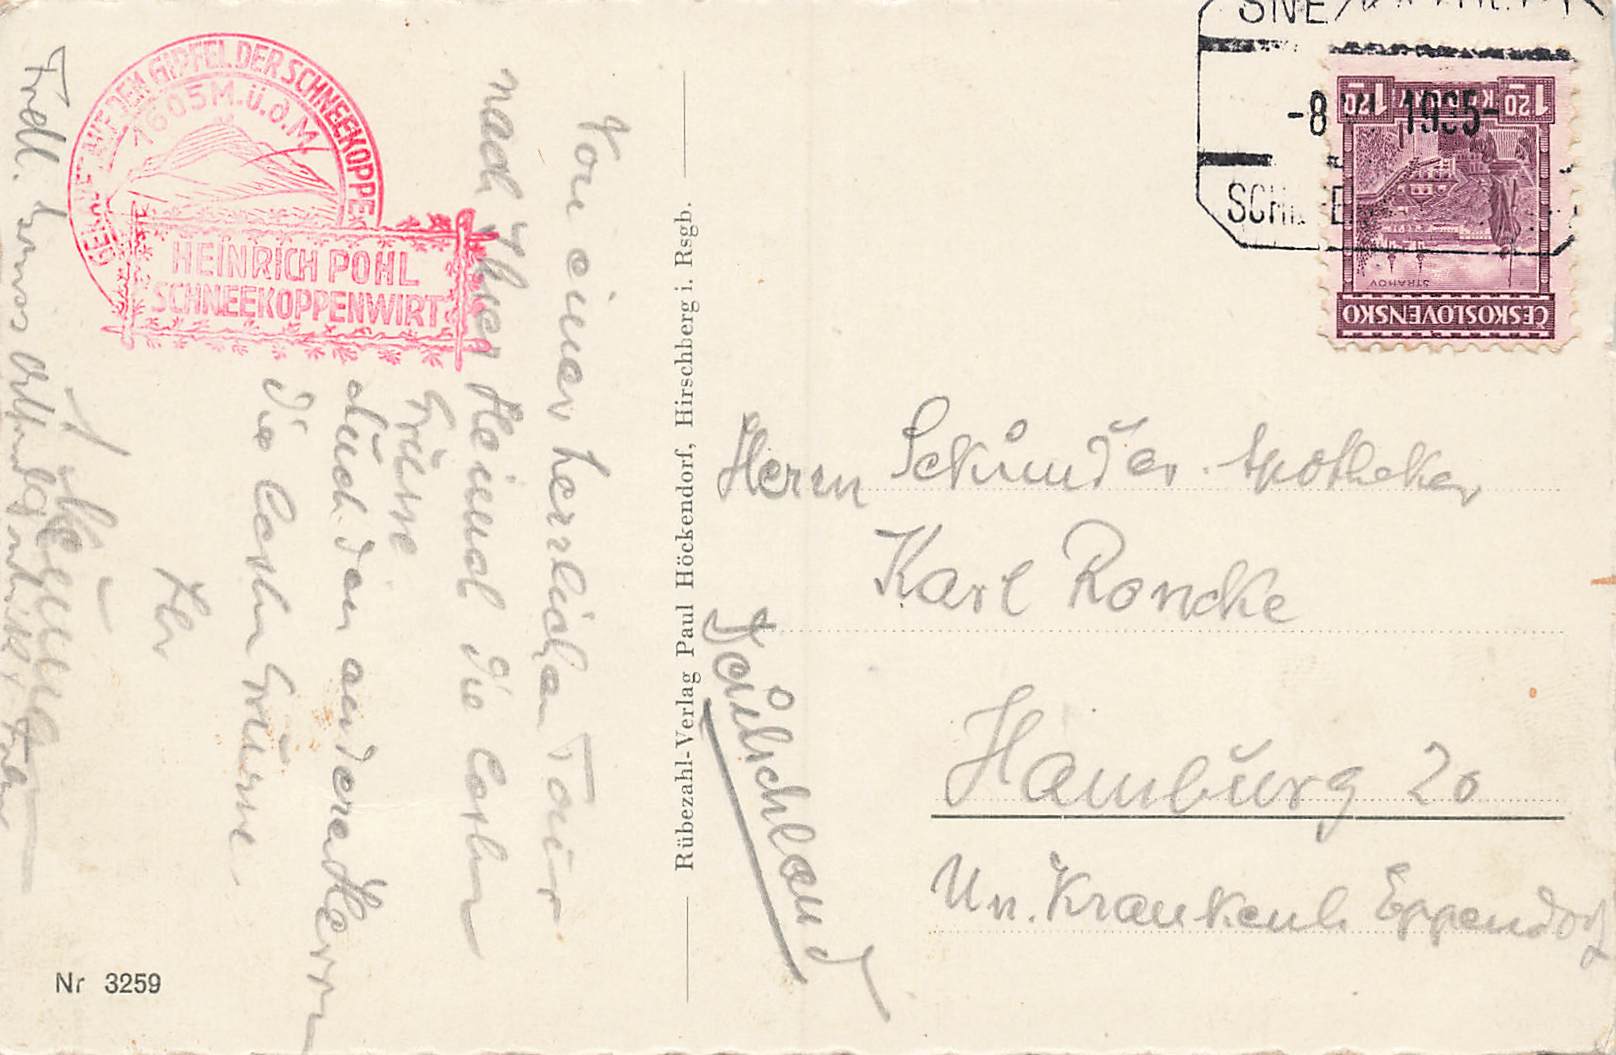 GEKAUFT AUF DEM GIPFEL DER SCHNEEKOPPE
1605 M.ü.d.M
HEINRICH POHL
SCHNEEKOPPENWIRT
Von einer herrlichen Tour
nach Ihrer Heimat die besten
Grüsse
Auch den anderen Herrn
die besten Grüsse
Ihr
Frdl. Gruss
Nr 3259
Rübezahl-Verlag Paul Höckendorf, Hirschberg i. Rsgb.
-8 VII 1935-
1 20
1 20
STRAHOV
ČESKOSLOVENSKO
Herrn Apotheker
Karl Roncke
Hamburg 20
Un. Krankenh Eppendorf
Deutschland